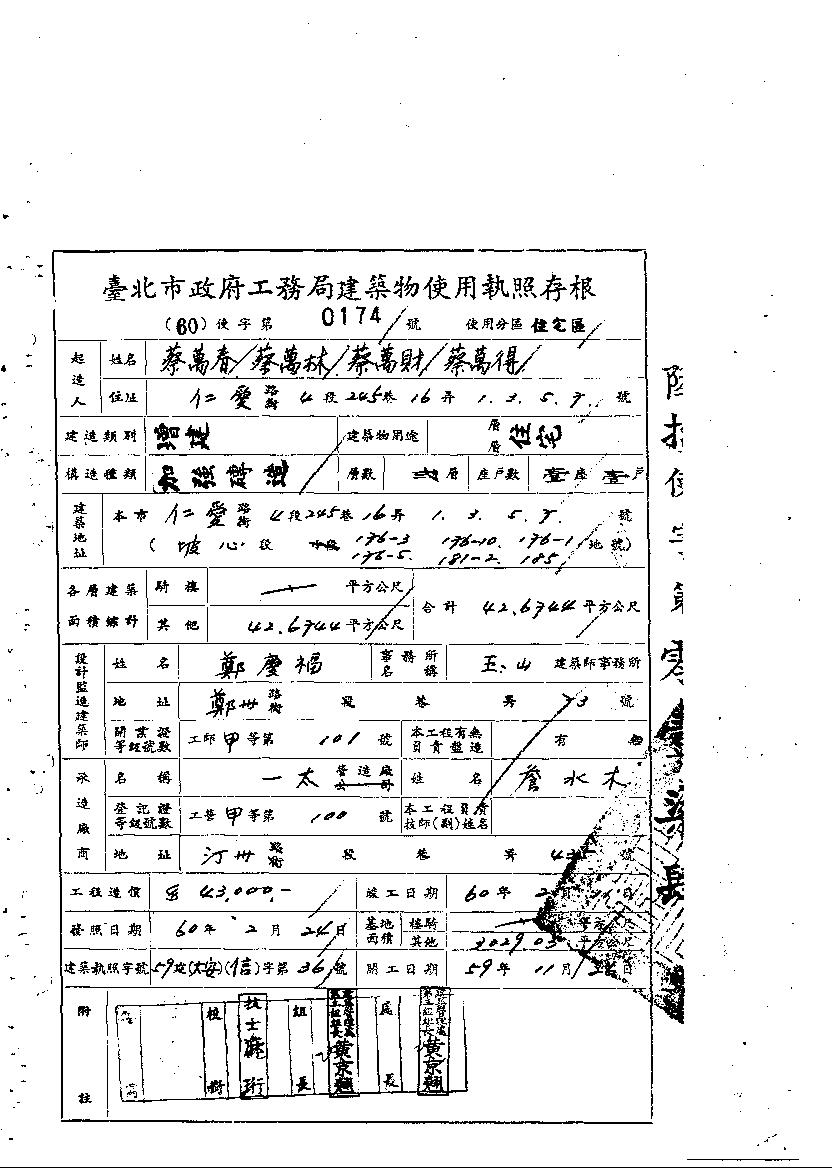 臺北市政府工務局建築物使用執照存根
(60) 使字第 0174 號 使用分區 住宅區
起造人 姓名 蔡萬春 蔡萬林 蔡萬財 蔡萬得
住址 仁愛路街 4段245巷16弄 1.3.5.7. 號
建造類別 增建 建築物用途 層層 住宅
構造種類 加強磚造 層數 弍層 座戶數 壹座壹戶
建築地址 本市 仁愛路街 4段245巷16弄 1.3.5.7. 號
(坡心段 小段 176-3 176-10 176-1 地號)
176-5. 181-2. 185
各層建築面積總計 騎樓 平方公尺 合計 42.6744 平方公尺
其他 42.6744 平方公尺
設計監造建築師 姓名 鄭慶福 事務所名稱 五山 建築師事務所
地址 鄭州路街 段 巷 弄 73 號
開業證等級號數 工師甲等第 101 號 本工程有無負責監造 有 無
承造廠商 名稱 一太 營造廠公司 姓名 詹水木
登記證等級號數 工營甲等第 100 號 本工程負責技師(副)姓名
地址 汀州路街 段 巷 弄 號
工程造價 43,000.- 竣工日期 60年2月 日
發照日期 60年2月24日 基地面積 騎樓 平方公尺
其他 3029.03 平方公尺
建築執照字號 59建(大安)(信)字第36號 開工日期 59年11月 日
附註 校對 技士 組長 黃京翹 局長 黃京翹